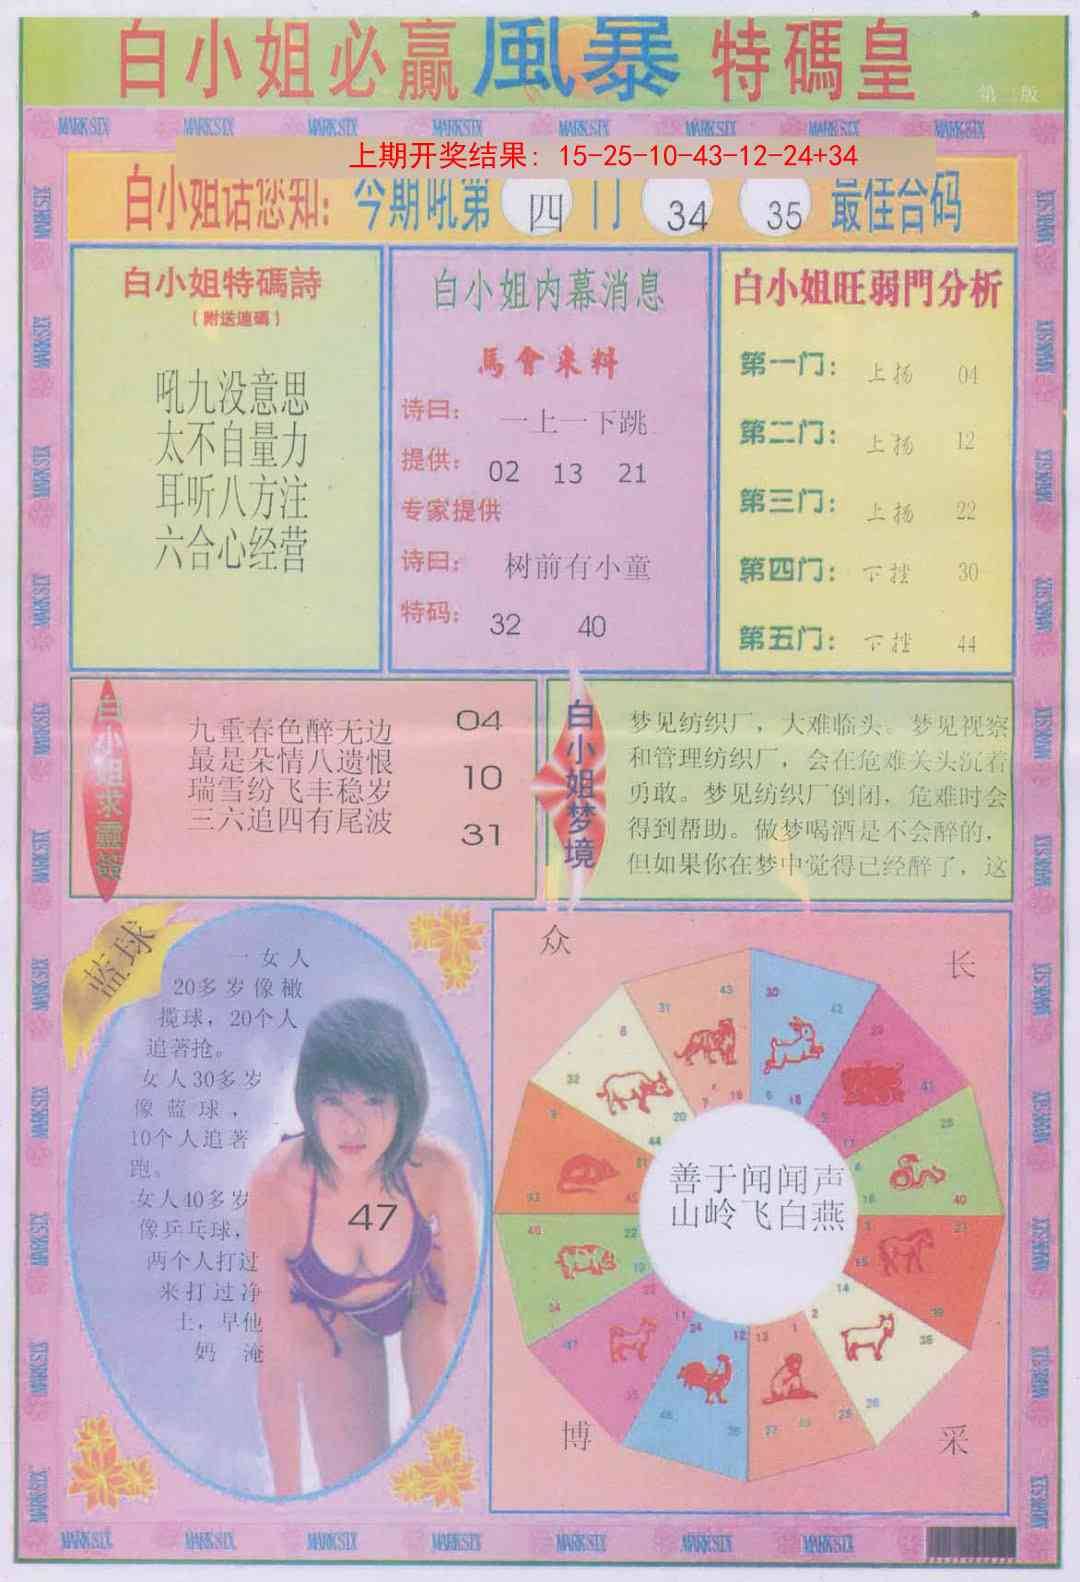 白小姐必赢風暴特碼皇
第二版
MARK SIX MARK SIX MARK SIX MARK SIX MARK SIX MARK SIX MARK SIX MARK SIX
上期开奖结果：15-25-10-43-12-24+34
白小姐话您知：今期吼第 四 门 34 35 最佳合码
白小姐特碼詩
（附送連碼）
吼九没意思
太不自量力
耳听八方注
六合心经营
白小姐内幕消息
馬會来料
诗曰：一上一下跳
提供：02 13 21
专家提供
诗曰：树前有小童
特码：32 40
白小姐旺弱門分析
第一门：上扬 04
第二门：上扬 12
第三门：上扬 22
第四门：下挫 30
第五门：下挫 44
白小姐求靈簽
九重春色醉无边
最是朵情八遗恨
瑞雪纷飞丰稳岁
三六追四有尾波
04
10
31
白小姐梦境
梦见纺织厂，大难临头。梦见视察
和管理纺织厂，会在危难关头沉着
勇敢。梦见纺织厂倒闭，危难时会
得到帮助。做梦喝酒是不会醉的，
但如果你在梦中觉得已经醉了，这
蓝球
一女人
20多岁像橄
揽球，20个人
追著抢。
女人30多岁
像蓝球，
10个人追著
跑。
女人40多岁
像乒乓球，
两个人打过
来打过净
土，早他
奶 淹
47
众
长
博
采
善于闻闻声
山岭飞白燕
MARK SIX MARK SIX MARK SIX MARK SIX MARK SIX MARK SIX MARK SIX